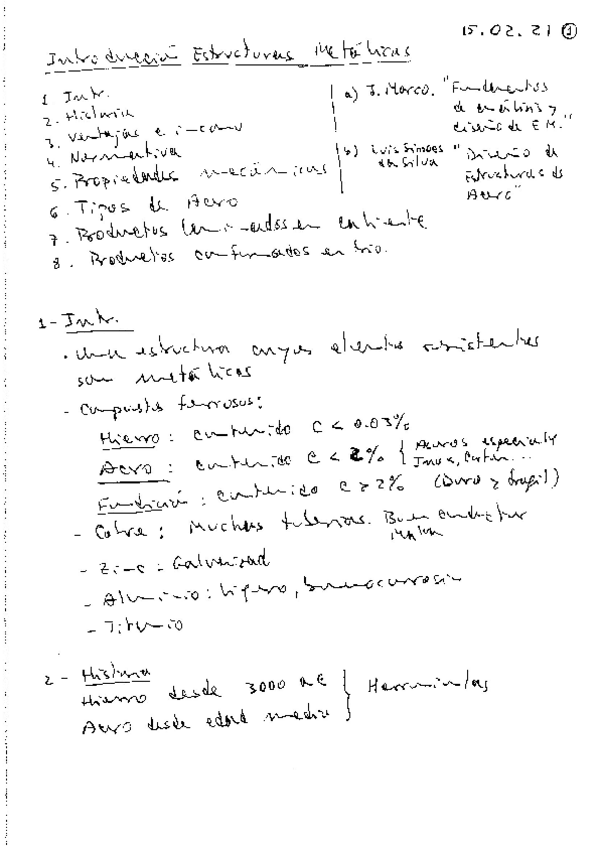 15.02.21 ①
Introducción Estructuras Metálicas
1 Intr.
2. Historia
3. Ventajas e inconv
4. Normativa
5. Propiedades mecánicas
6. Tipos de Acero
7. Productos laminados en caliente
8. Productos conformados en frio.
a) J. Marco. "Fundamentos
de análisis y
diseño de E.M."
b) Luis Simoes
da Silva "Diseño de
Estructuras de
Acero"
1 - Intr.
. Una estructura cuyos elementos resistentes
son metálicos
- Compuestos ferrosos:
Hierro : contenido C < 0.03%
Acero : contenido C < 2% { Aceros especiales
Inox, Corten...
Fundición : contenido C > 2% (Duro y fragil)
- Cobre : Muchas tuberias. Buen conductor
- Zinc : Galvanizad
- Aluminio : ligero, buena corrosión
- Titanio
2 - Historia
Hierro desde 3000 a.C } Herramientas
Acero desde edad media